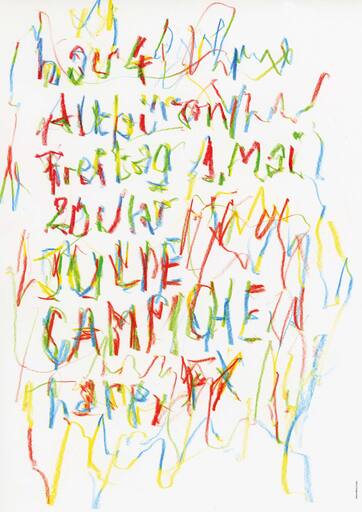 bau 4
Altbüron
Freitag 1. Mai
20 Uhr
JULIE
CAMPICHE
harp, FX